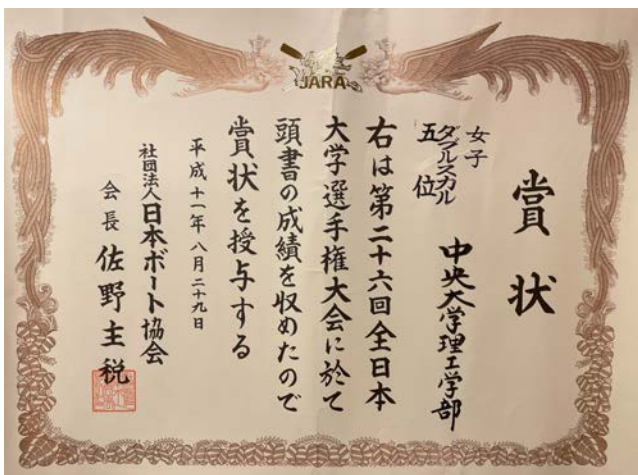 JARA
賞状
女子
ダブルスカル
五位
中央大学理工学部
右は第二十六回全日本
大学選手権大会に於て
頭書の成績を収めたので
賞状を授与する
平成十一年八月二十九日
社団法人日本ボート協会
会長 佐野主税